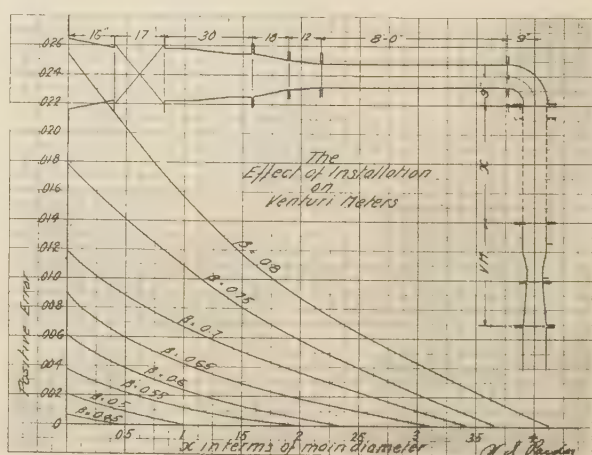 16" 17" 30 18 12 8-0" 9"
.026
.024
.022
.020
.018
.016
.014
.012
.010
.008
.006
.004
.002
0
9"
x
VM
The
Effect of Installation
on
Venturi Meters
β=0.8
β=0.75
β=0.7
β=0.65
β=0.6
β=0.55
β=0.5
β=0.45
Positive Error
.05 1 1.5 2 3 3.5 4
x in terms of main diameter